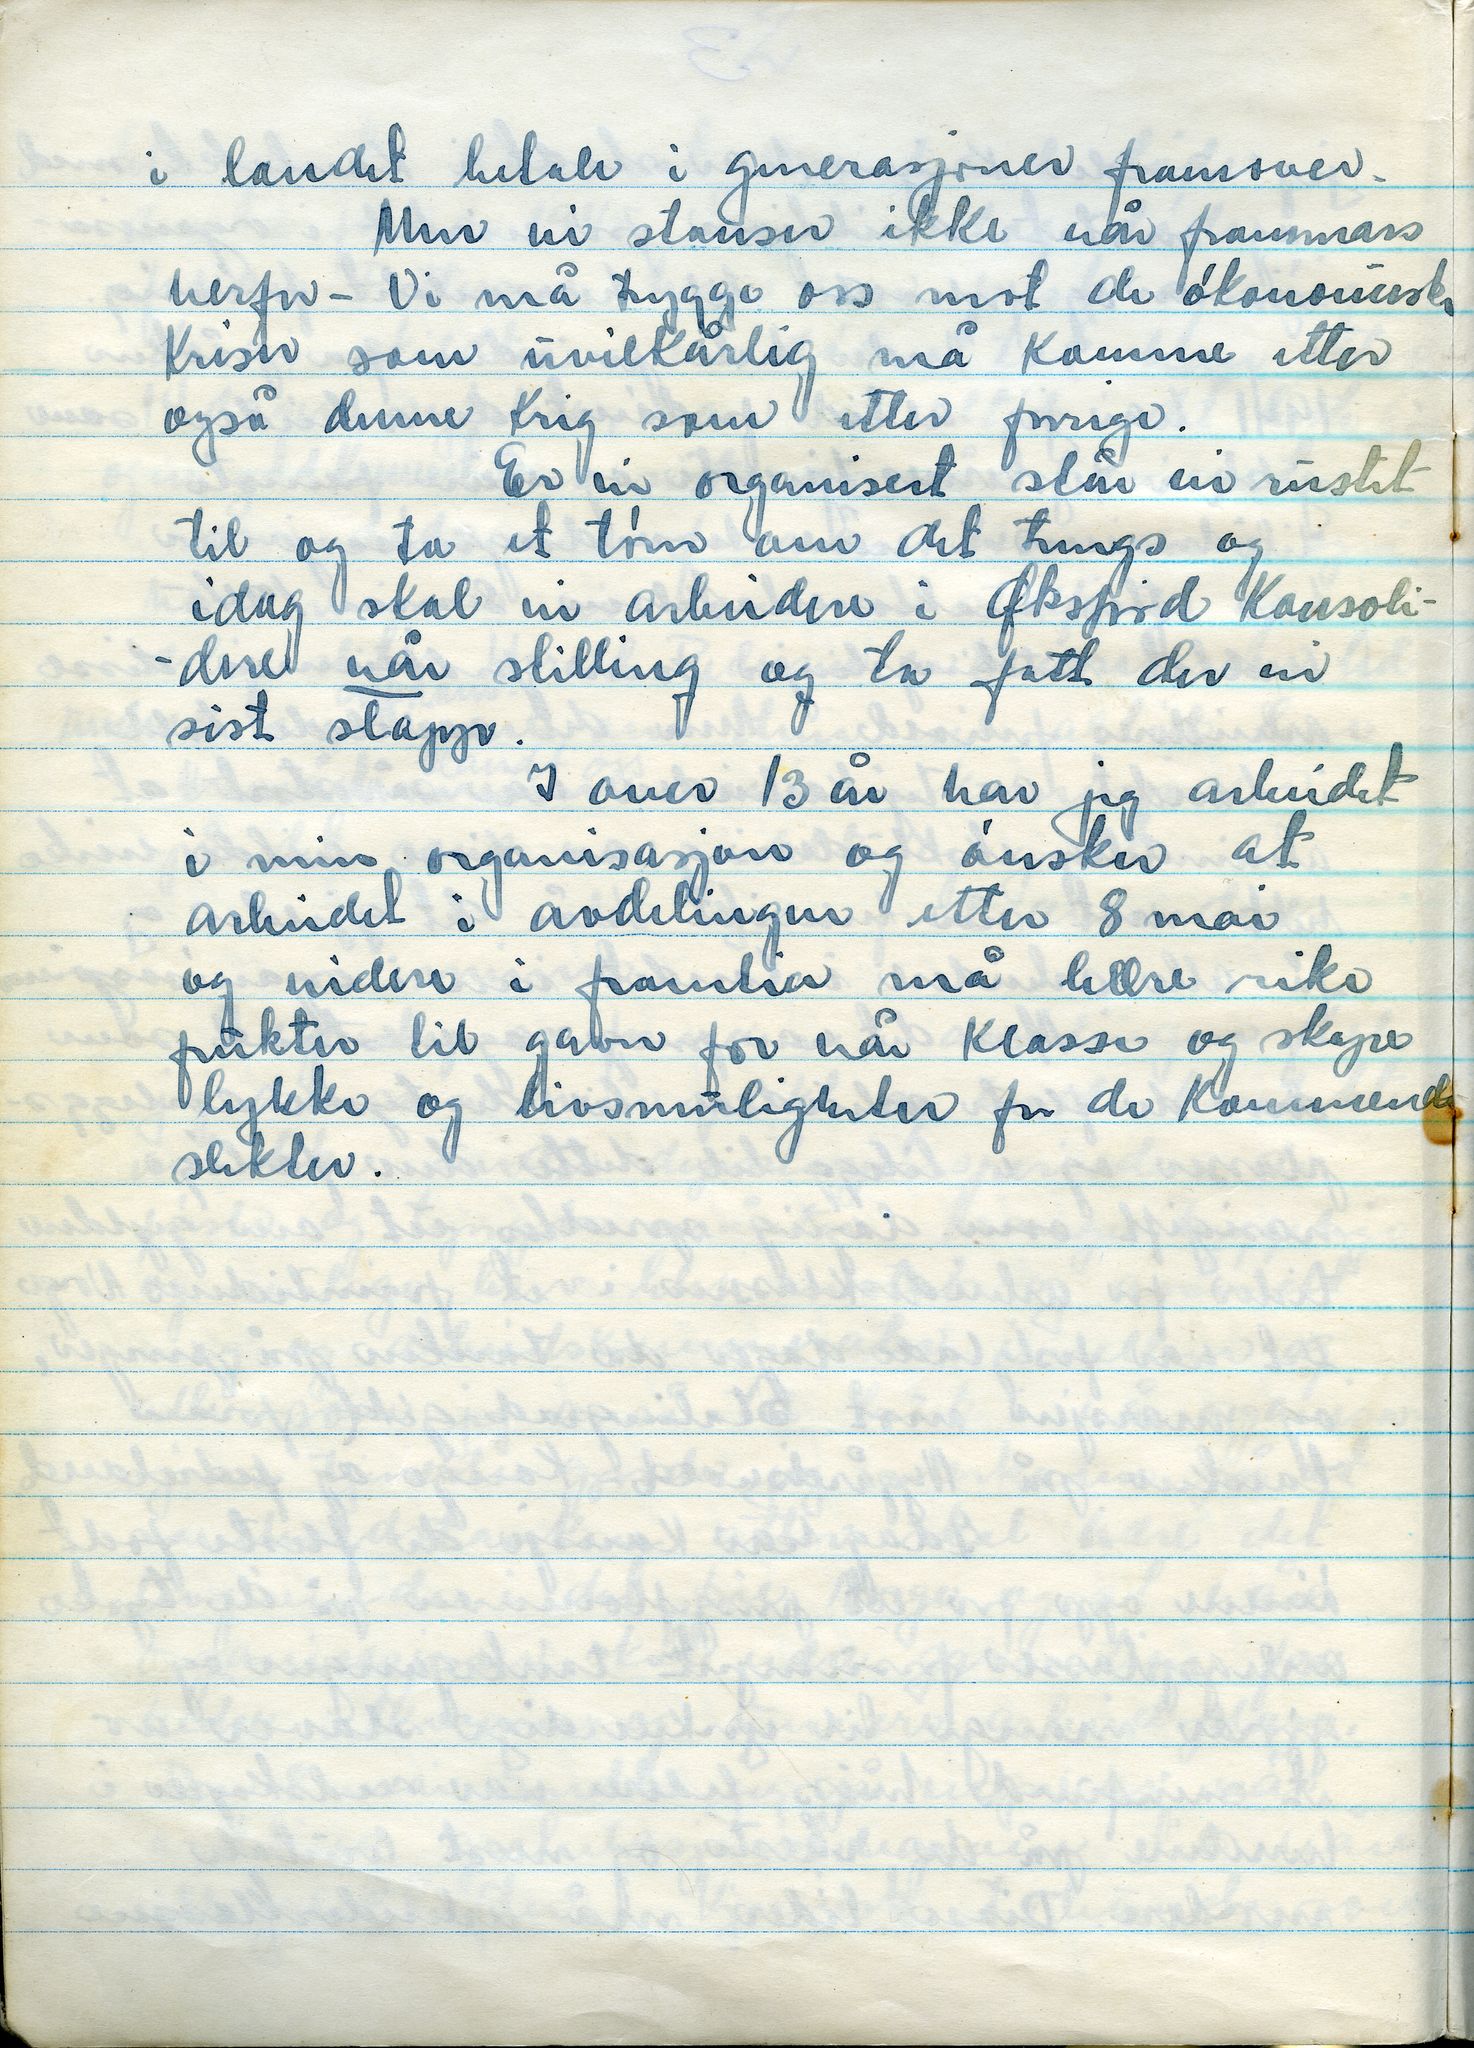 i landet betale i generasjoner framover.
Men vi stanser ikke vår frammars
herfor - Vi må trygge oss mot de økonomiske
kriser som uvilkårlig må komme etter
også denne krig som etter forrige.
Er vi organisert står vi rustet
til og ta et tørn om det trengs og
idag skal vi arbeidere i Øksfjord konsoli-
-dere vår stilling og ta fatt der vi
sist slapp.
I over 13 år har jeg arbeidet
i min organisasjon og ønsker at
arbeidet i avdelingen etter 8 mai
og videre i framtia må bære rike
frukter til gavn for vår klasse og skape
lykke og livsmuligheter for de kommende
slekter.